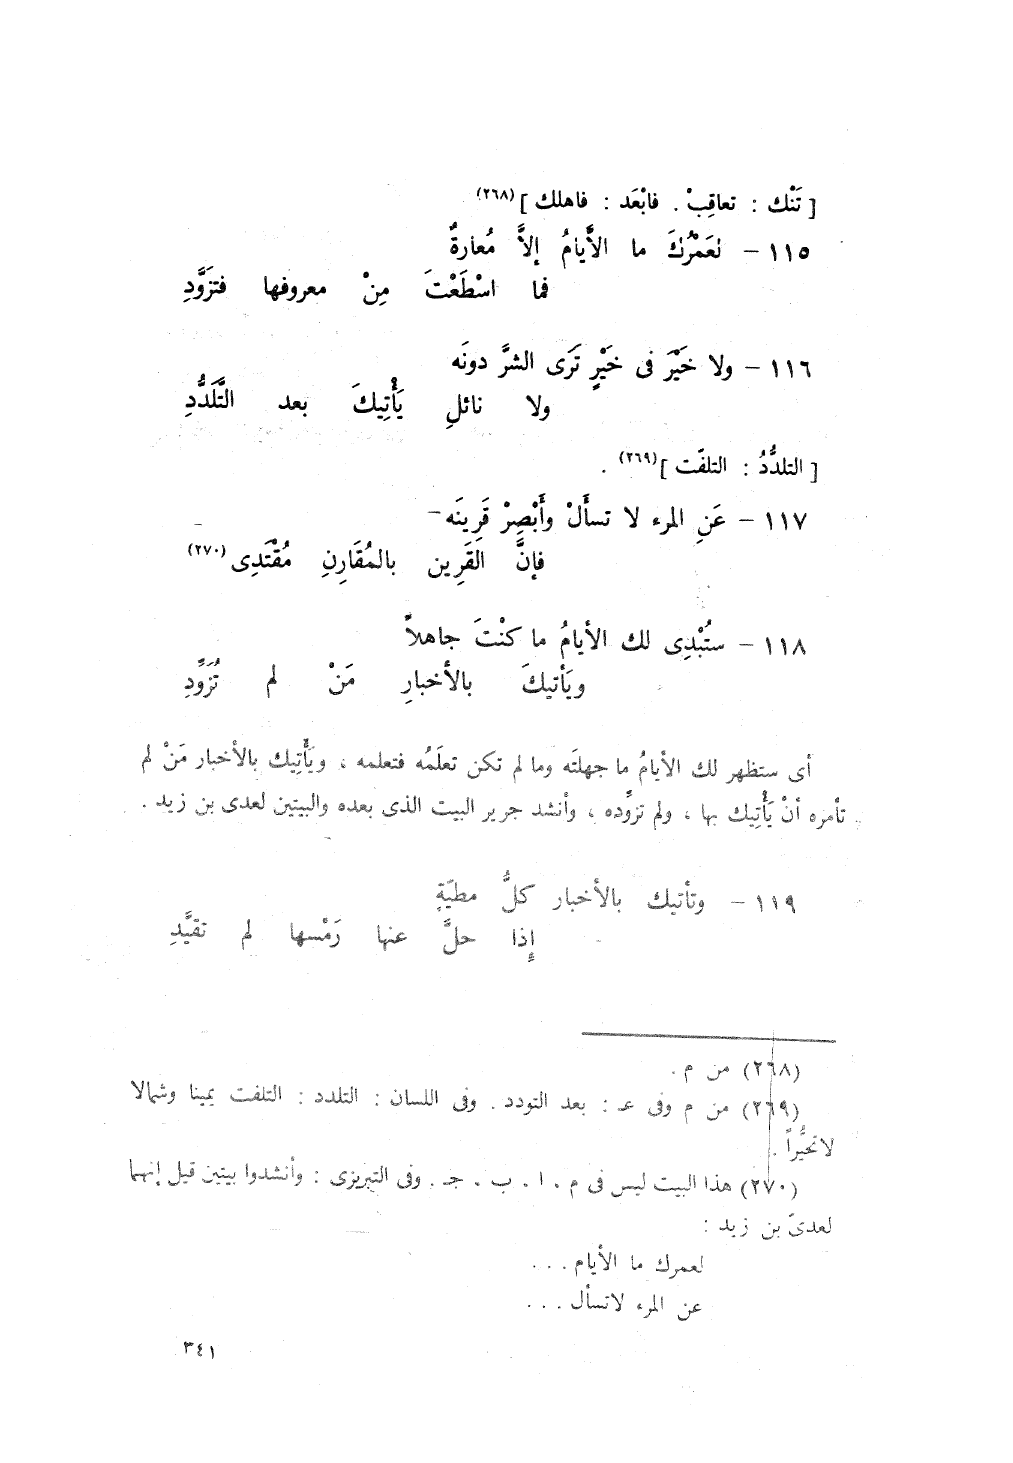 [ تَنْك : تعاقِبْ . فابْعَد : فاهلك ] (٢٦٨)
١١٥ – لعَمْرُكَ ما الأيامُ إلاَّ مُعارةٌ
فما اسْطَعْتَ مِنْ معروفها فتزَوَّدِ
١١٦ – ولا خَيْرَ فى خَيْرٍ تَرَى الشرَّ دونَه
ولا نائلٍ يَأْتِيكَ بعد التَّلَدُّدِ
[ التلدُّدُ : التلفّت ] (٢٦٩) .
١١٧ – عَنِ المرء لا تسأَلْ وأَبْصِرْ قَرِينَه –
فإنَّ القَرِين بالمُقَارِنِ مُقْتَدِى (٢٧٠)
١١٨ – ستُبْدِى لك الأيامُ ما كنْتَ جاهلاً
ويَأتيكَ بالأخبارِ مَنْ لم تُزَوِّدِ
أى ستظهر لك الأيامُ ما جهلتَه وما لم تكن تعلَمُه فتعلمه ، ويَأْتِيك بالأخبار مَنْ لم
تأمره أنْ يَأْتِيك بها ، ولم تزوِّده ، وأنشد جرير البيت الذى بعده والبيتين لعدى بن زيد .
١١٩ – وتأتيك بالأخبار كلُّ مطيّةٍ
إِذا حلَّ عنها رَمْسها لم تقيَّدِ
(٢٦٨) من م .
(٢٦٩) من م وفى عـ : بعد التودد . وفى اللسان : التلدد : التلفت يمينا وشمالا
لاتحيُّراً .
(٢٧٠) هذا البيت ليس فى م . ا . ب . جـ . وفى التبريزى : وأنشدوا بيتين قيل إنهما
لعدىّ بن زيد :
لعمرك ما الأيام . . .
عن المرء لاتسأل . . .
٣٤١